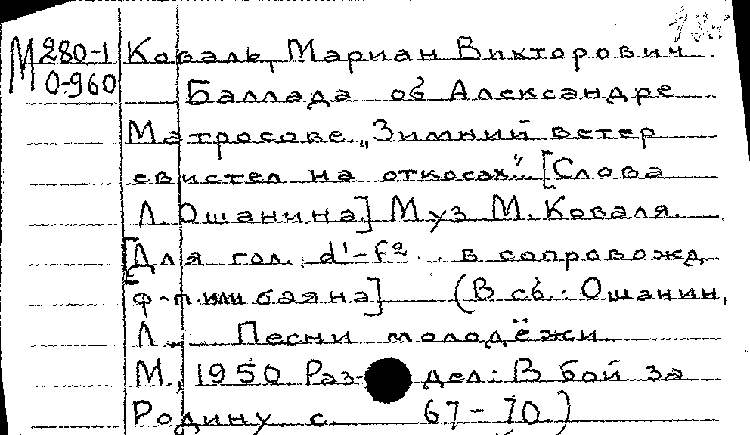 М 280-1
0-960
Коваль, Мариан Викторович
Баллада об Александре
Матросове „Зимний ветер
свистел на откосах". [Слова
Л. Ошанина] Муз М. Коваля.
[Для гол. d¹-f² в сопровожд.
ф-п. или баяна] (В сб.: Ошанин,
Л. Песни молодёжи
М., 1950 Раздел: В бой за
Родину с. 67-70)